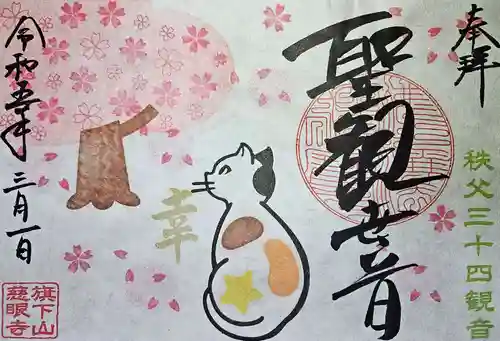 奉拝
秩父三十四観音
聖観世音
幸
令和五年
三月一日
旗下山
慈眼寺